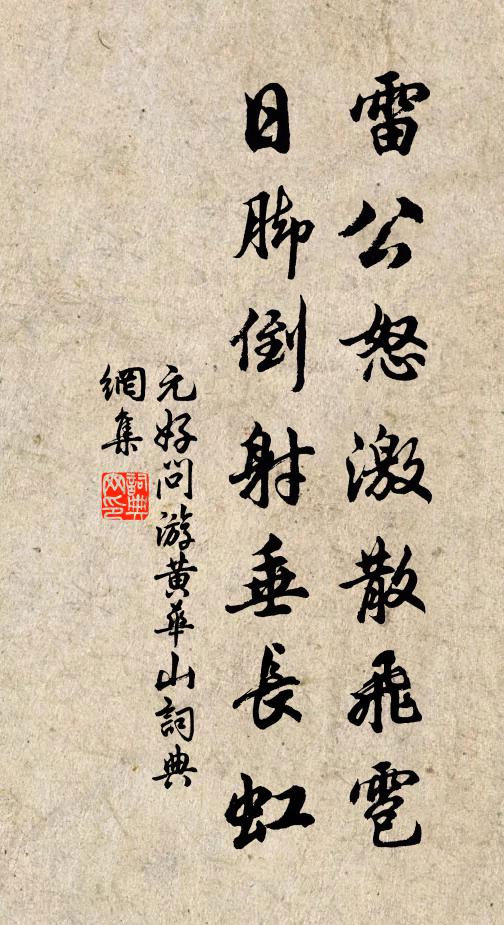 雷公怒激散飛雹
日脚倒射垂長虹
元好问游黄華山詞典
網集
詞典
网印